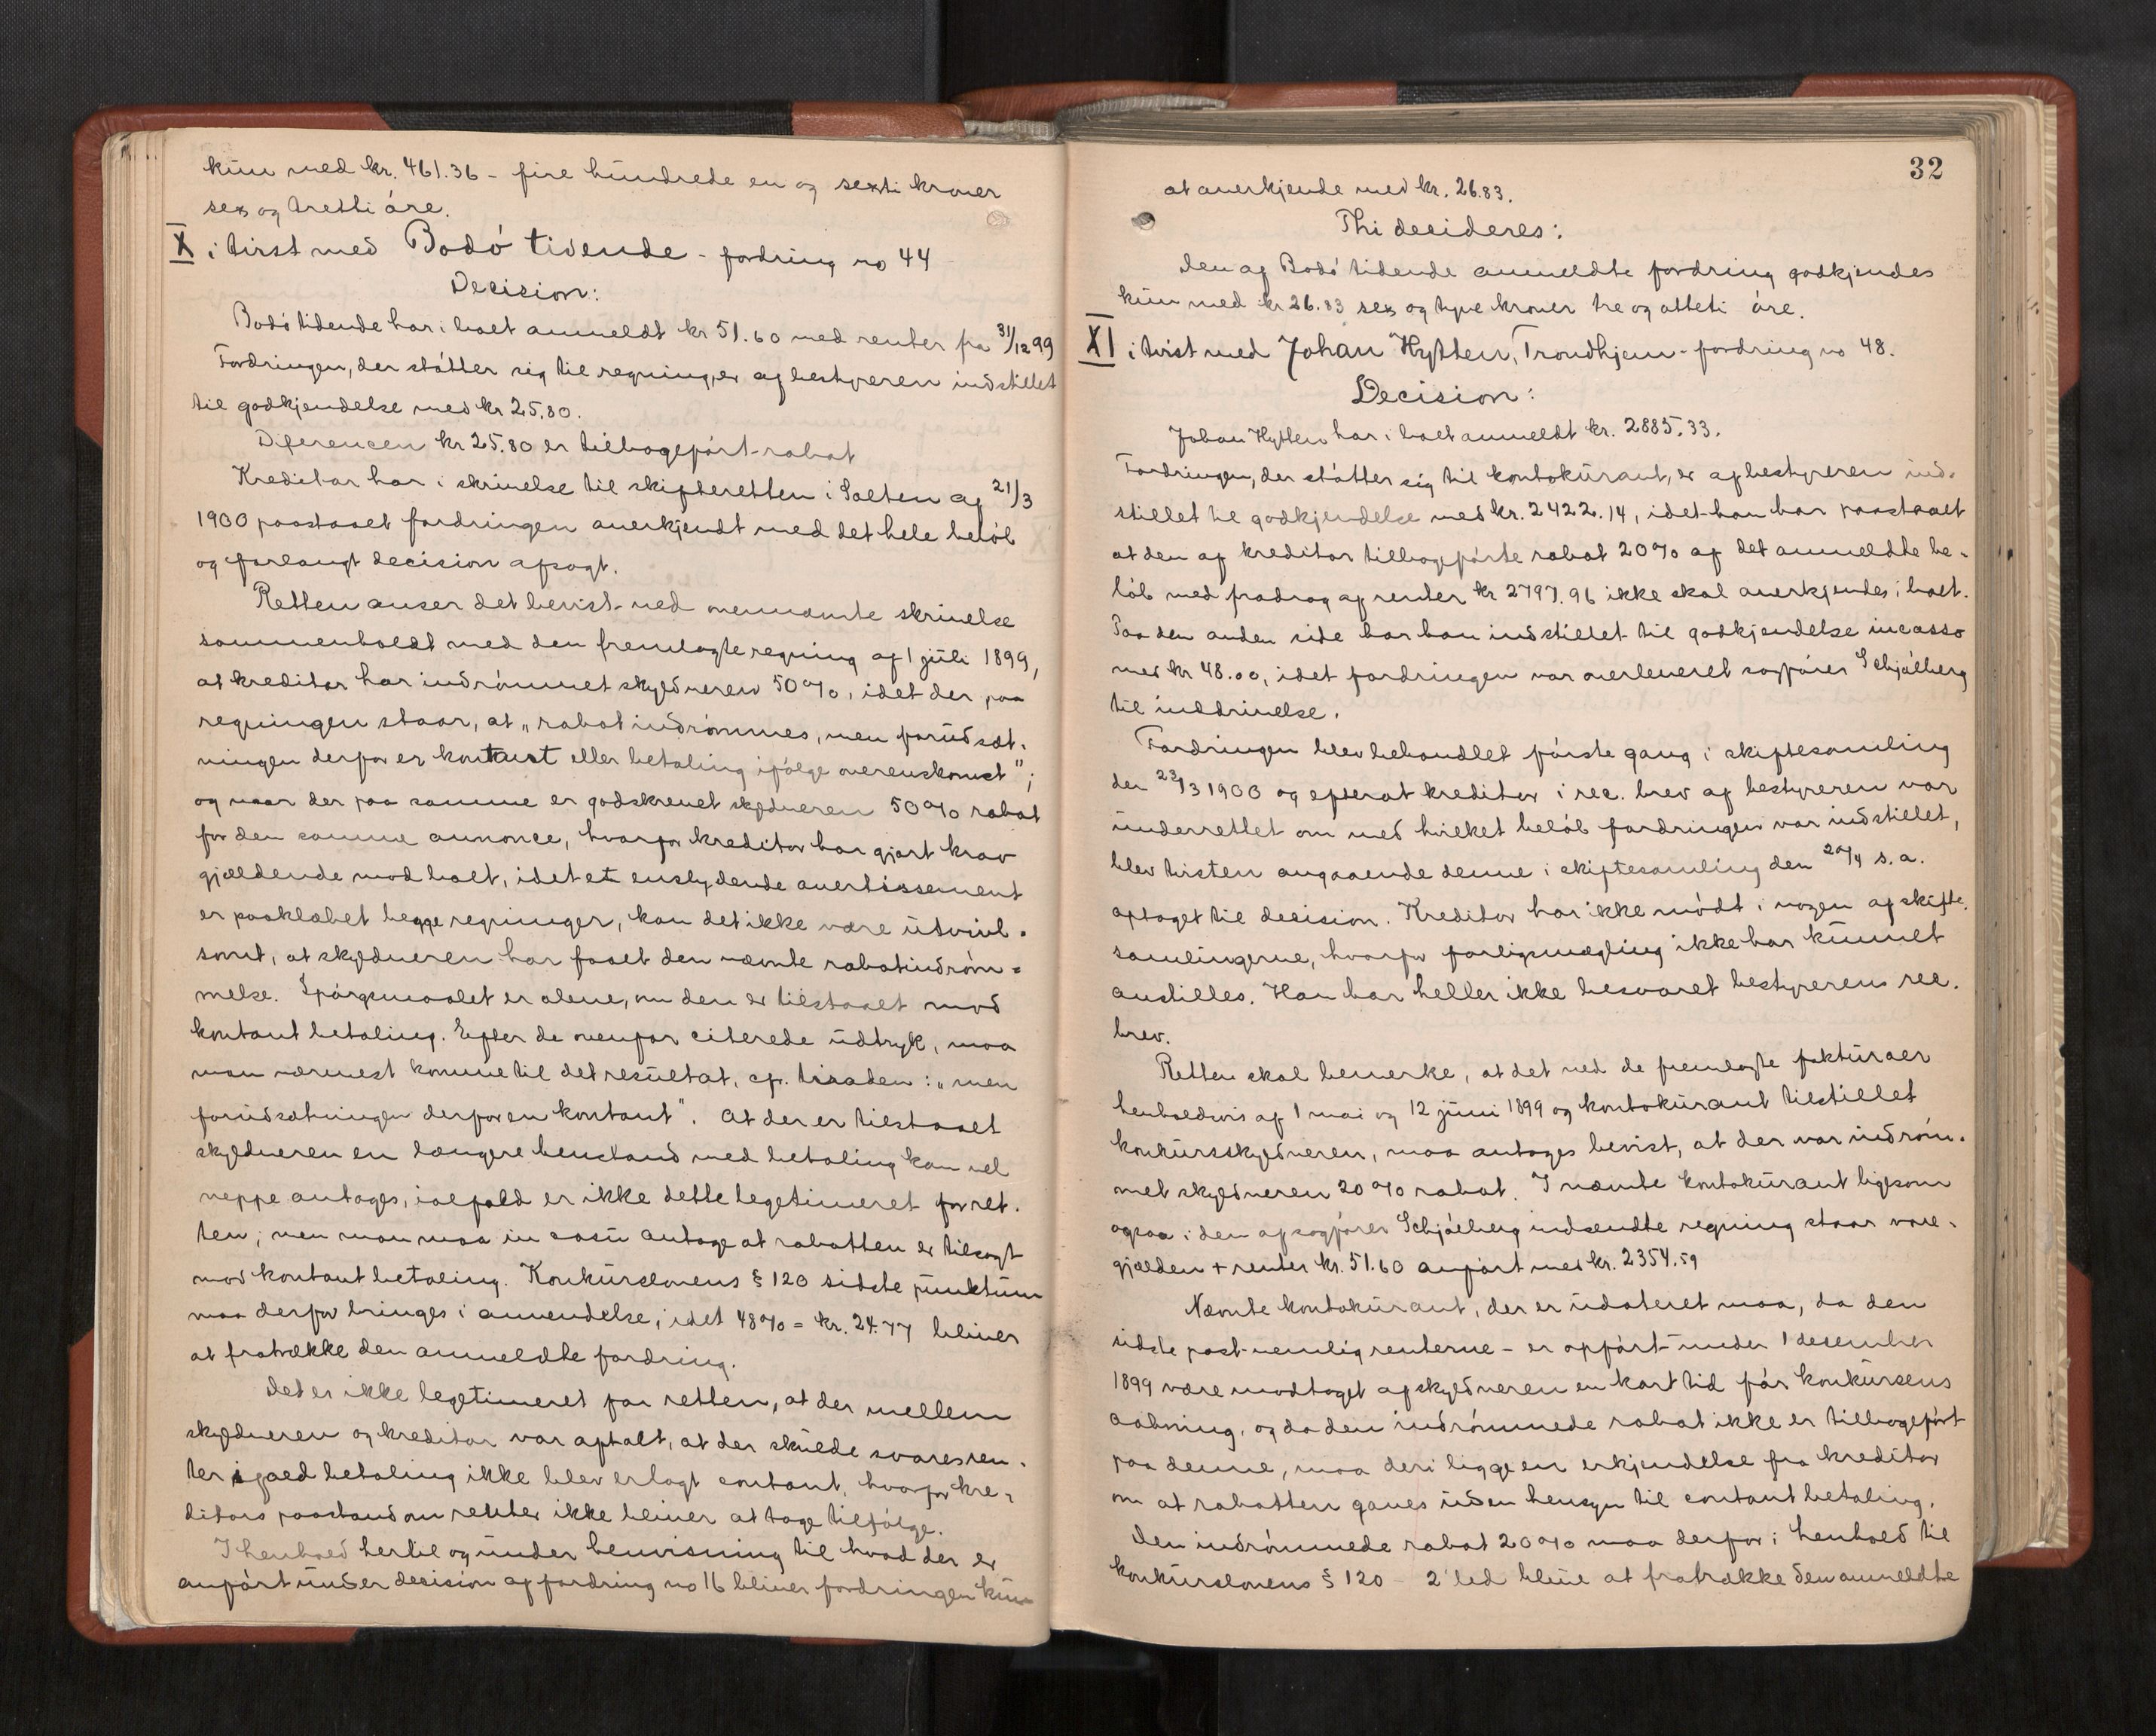 kun med kr. 461.36 - fire hundrede en og sexti kroner
sex og tretti øre.
X i tvist med Bodø tidende - fordring no 44
Decision:
Bodø tidende har i boet anmeldt kr 51.60 med renter fra 31/12 99
Fordringen, der støtter sig til regning, er af bestyreren indstillet
til godkjendelse med kr 25.80.
Diferencen kr 25.80 er tilbageført rabat
Kreditor har i skrivelse til skifteretten i Salten af 21/3
1900 paastaaet fordringen anerkjendt med det hele beløb
og forlangt decision afsagt.
Retten anser det bevist ved ovennævnte skrivelse
sammenholdt med den fremlagte regning af 1 juli 1899,
at kreditor har indrømmet skyldneren 50%, idet der paa
regningen staar, at „rabat indrømmes, men forudsæt-
ningen derfor er kontant eller betaling ifølge overenskomst";
og naar der paa samme er godskrevet skyldneren 50% rabat
for den samme annonce, hvorfor kreditor har gjort krav
gjældende mod boet, idet et enslydende avertissement
er paaklæbet begge regninger, kan det ikke være utvivl-
somt, at skyldneren har faaet den nævnte rabatindrøm-
melse. Spørgsmaalet er alene, om den er tilstaaet mod
kontant betaling. Efter de ovenfor citerede udtryk, maa
man nærmest komme til det resultat, cfr. tiraden: „men
forudsætningen derfor en kontant". At der er tilstaaet
skyldneren en længere henstand med betaling kan vel
neppe antages, ialfald er ikke dette legetimeret for ret-
ten; men man maa in casu antage at rabatten er tilsagt
mod kontant betaling. Konkurslovens § 120 sidste punktum
maa derfor bringes i anvendelse, idet 48% = kr. 24.77 bliver
at fratrække den anmeldte fordring.
Det er ikke legetimeret for retten, at der mellem
skyldneren og kreditor var aftalt, at der skulde svares ren-
ter ifald betaling ikke blev erlagt contant, hvorfor kre-
ditors paastand om renter ikke bliver at tage tilfølge.
I henhold hertil og under henvisning til hvad der er
anført under decision af fordring no 16 bliver fordringen kun
32
at anerkjende med kr. 26.83.
Thi decideres:
Den af Bodø tidende anmeldte fordring godkjendes
kun med kr 26.83 sex og tyve kroner tre og otteti øre.
XI i tvist med Johan Hytten, Trondhjem - fordring no 48.
Decision:
Johan Hytten har i boet anmeldt kr. 2885.33.
Fordringen, der støtter sig til kontokurant, er af bestyreren ind-
stillet til godkjendelse med kr. 2422.14, idet han har paastaaet
at den af kreditor tilbageførte rabat 20% af det anmeldte be-
løb med fradrag af renter kr 2797.96 ikke skal anerkjendes i boet.
Paa den anden side har han indstillet til godkjendelse incasso
med kr 48.00, idet fordringen var overleveret sagfører Schjølberg
til inddrivelse.
Fordringen blev behandlet første gang i skiftesamling
den 23/3 1900 og efterat kreditor i rec. brev af bestyreren var
underrettet om med hvilket beløb fordringen var indstillet,
blev tvisten angaaende denne i skiftesamling den 20/4 s.a.
optaget til decision. Kreditor har ikke mødt i nogen af skifte-
samlingerne, hvorfor forligsmægling ikke har kunnet
anstilles. Han har heller ikke besvaret bestyrerens rec.
brev.
Retten skal bemerke, at det ved de fremlagte fakturaer
henholdsvis af 1 mai og 12 juni 1899 og kontokurant tilstillet
konkursskyldneren, maa antages bevist, at der var indrøm-
met skyldneren 20% rabat. I nævnte kontokurant ligesom
ogsaa i den af sagfører Schjølberg indsendte regning staar vare-
gjælden + renter kr. 51.60 anført med kr. 2354.59
Nævnte kontokurant, der er udateret maa, da den
sidste post - nemlig renterne - er opført under 1 desember
1899 være modtaget af skyldneren en kort tid før konkursens
aabning, og da den indrømmede rabat ikke er tilbageført
paa denne, maa deri ligge en erkjendelse fra kreditor
om at rabatten gaves uden hensyn til contant betaling.
Den indrømmede rabat 20% maa derfor i henhold til
konkurslovens § 120 2' led blive at fratrække den anmeldte